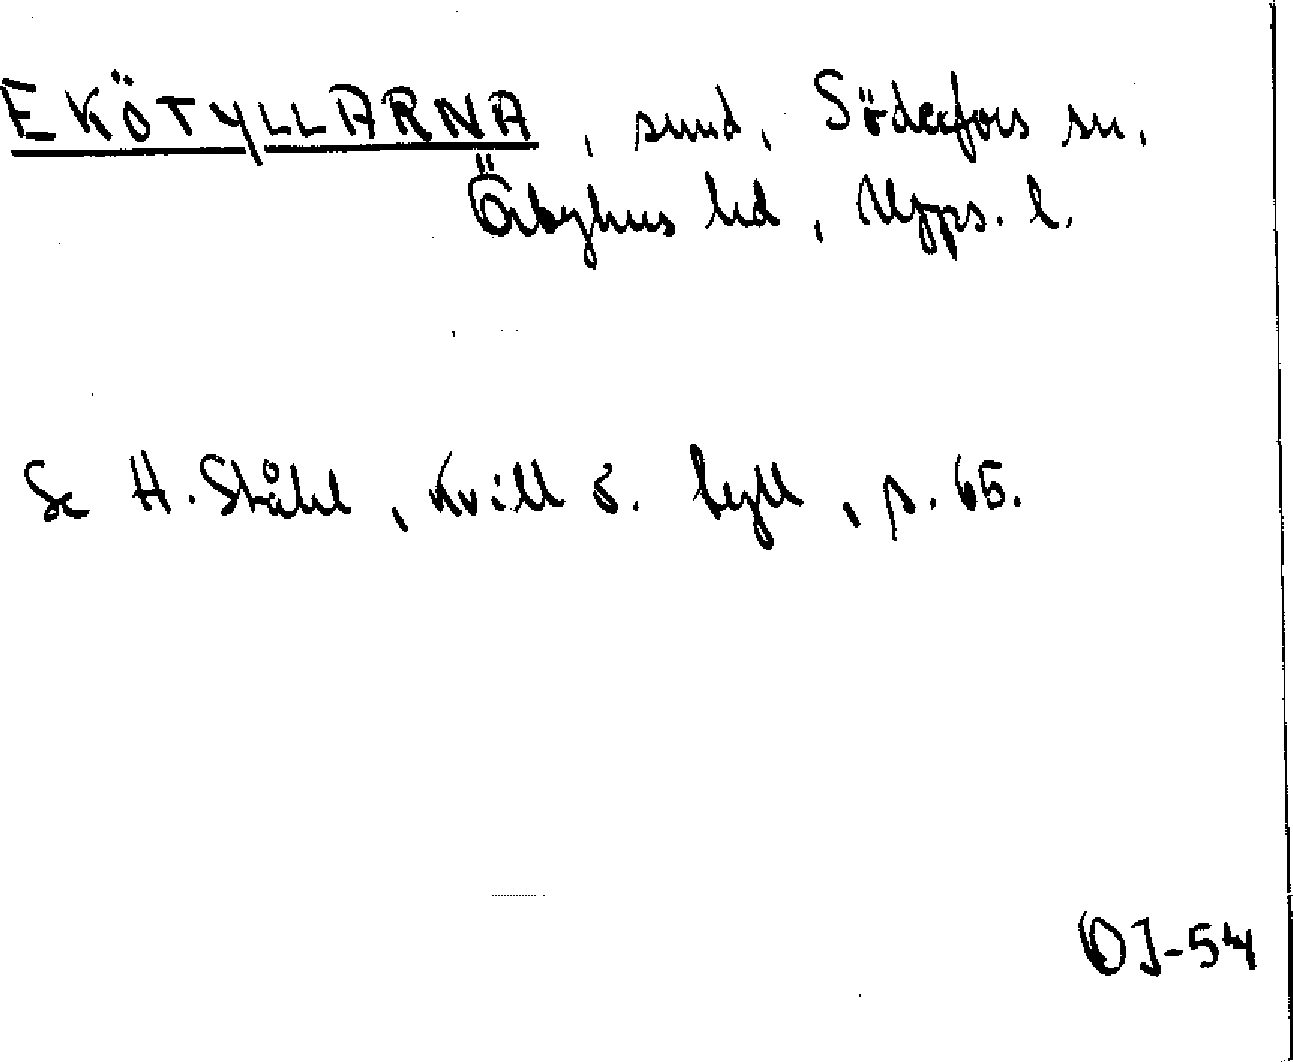 EKÖTYLLARNA, sund, Söderfors sn.
Örbyhus hd, Upps. l.
Se H. Ståhl, Kvill o. tyll, s. 65.
OJ-54